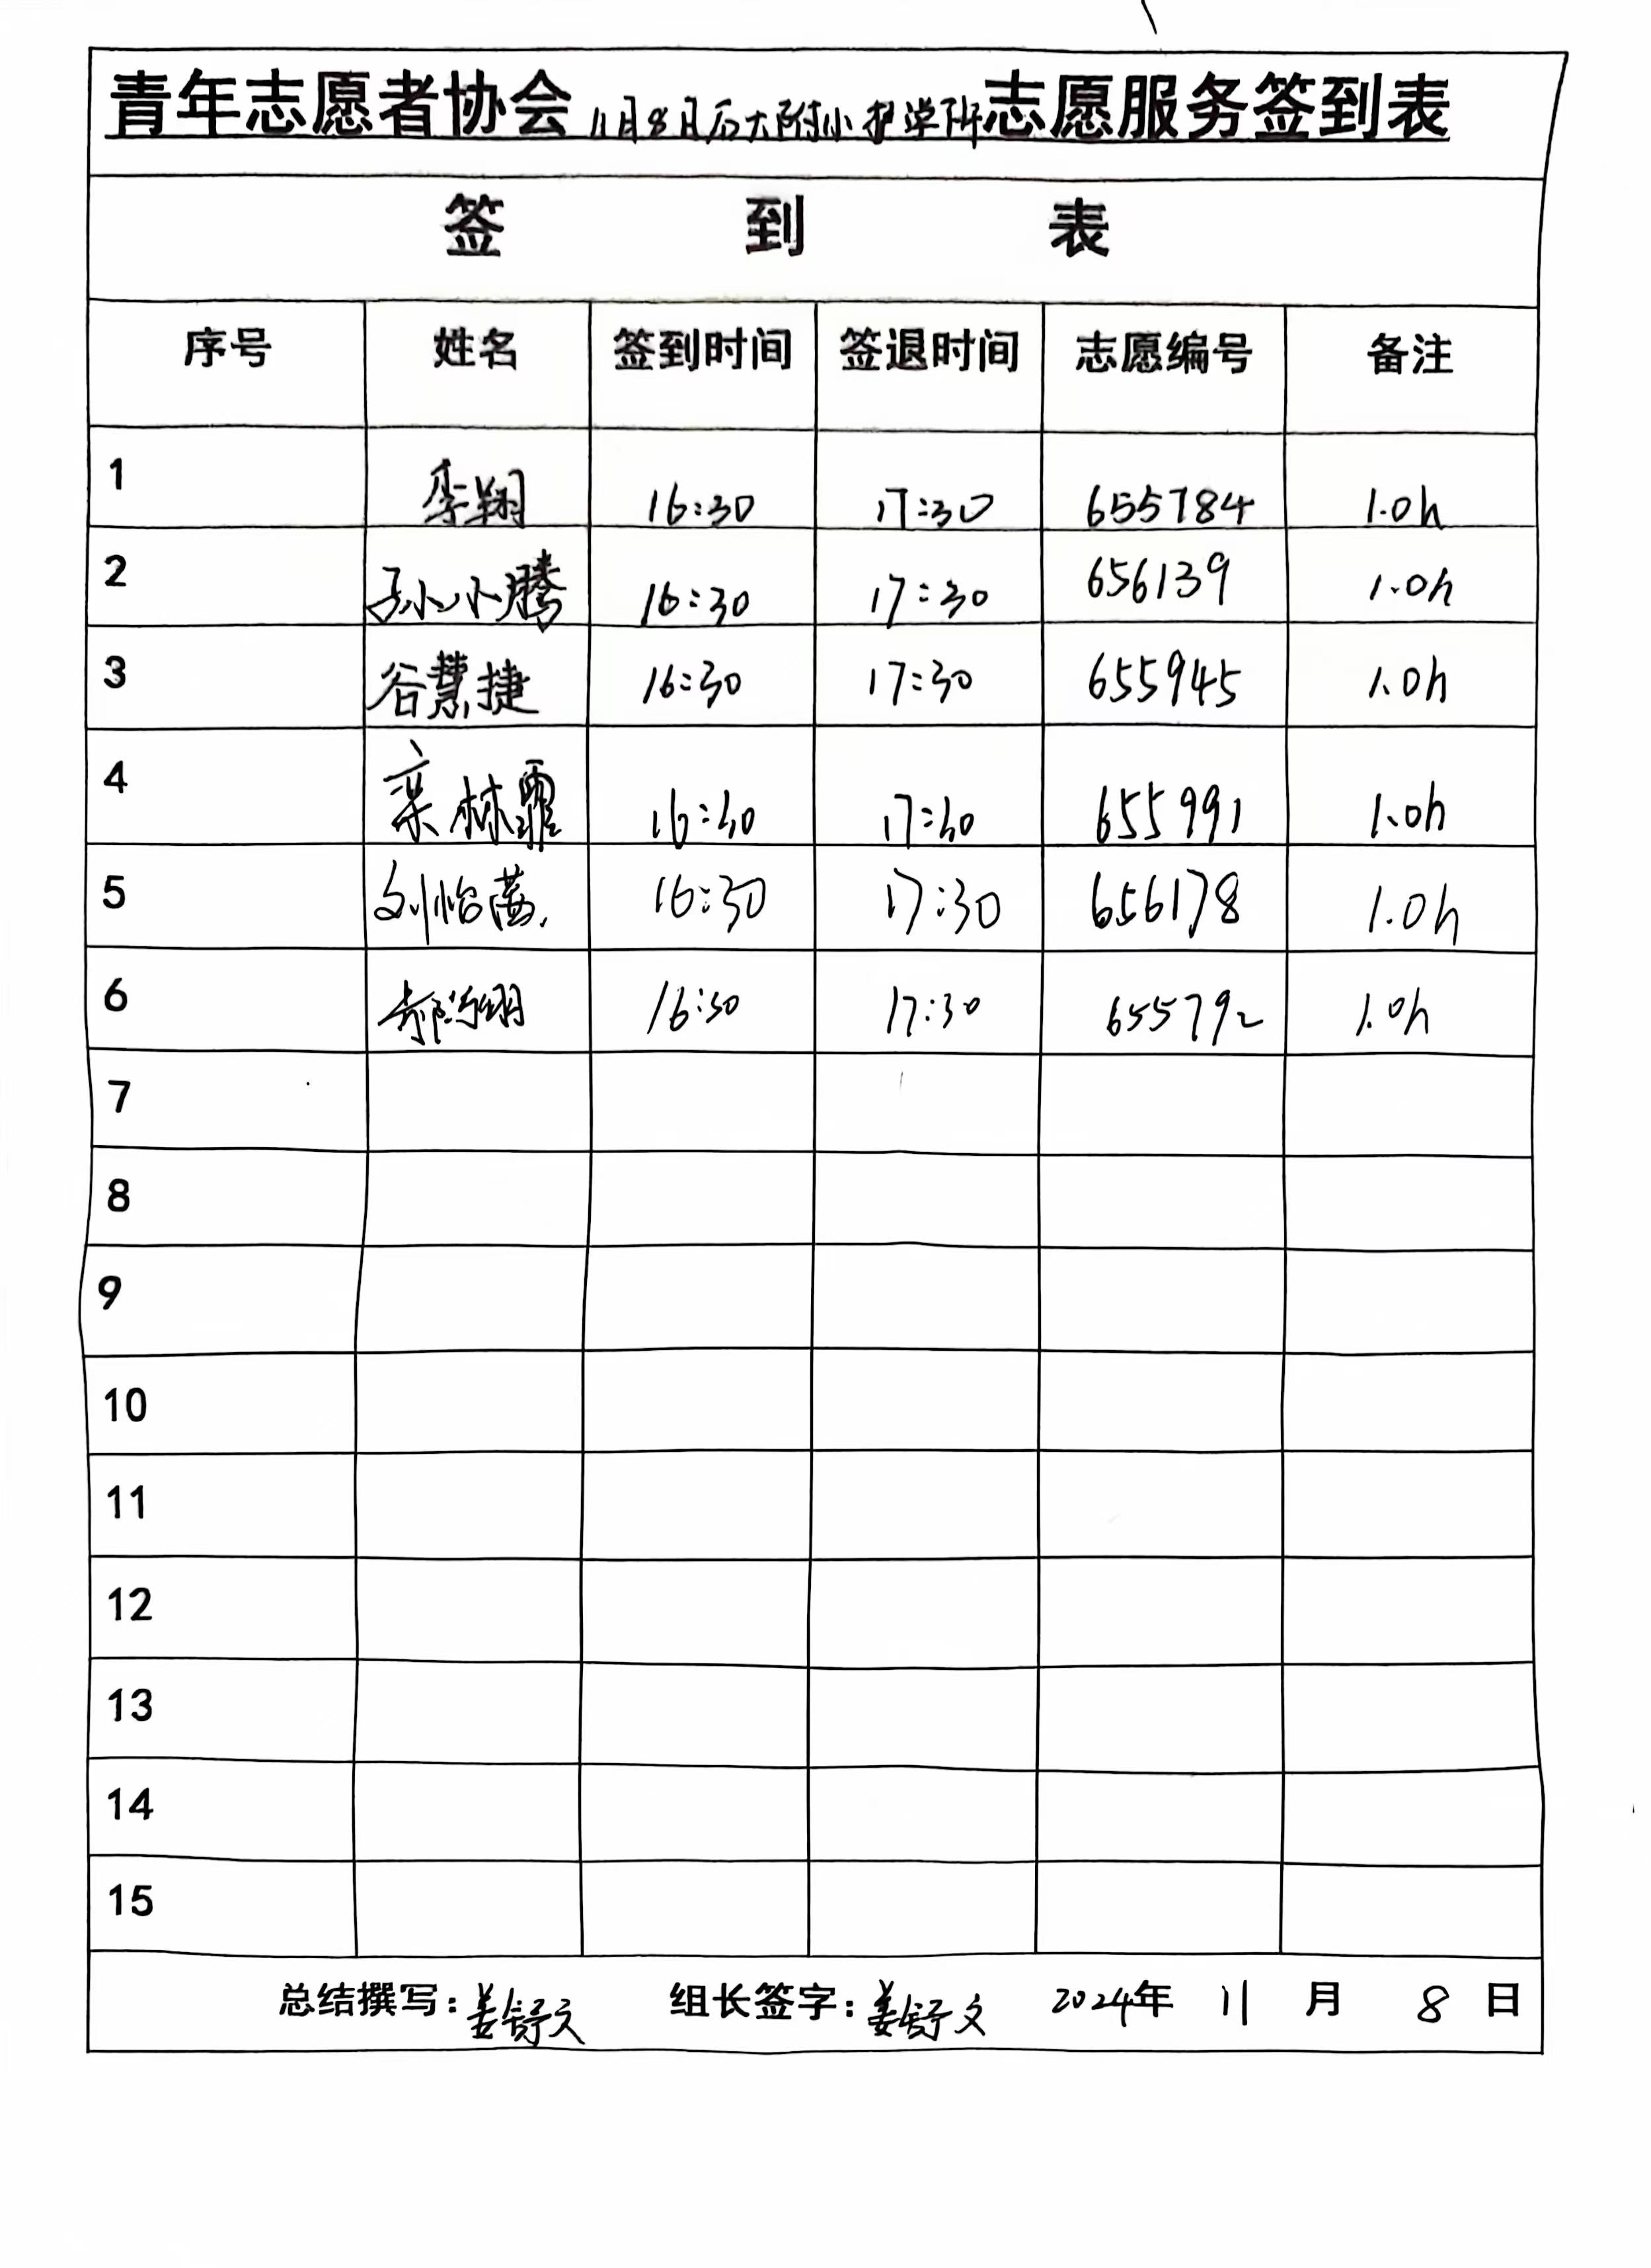 青年志愿者协会11月8日石大附小护学所志愿服务签到表
签 到 表
序号 姓名 签到时间 签退时间 志愿编号 备注
1 李翔 16:30 17:30 655784 1.0h
2 孙小腾 16:30 17:30 656139 1.0h
3 谷慧捷 16:30 17:30 655945 1.0h
4 栾林霏 16:30 17:30 655991 1.0h
5 刘怡 16:30 17:30 656178 1.0h
6 郝 16:30 17:30 655792 1.0h
7
8
9
10
11
12
13
14
15
总结撰写:姜舒文 组长签字:姜舒文 2024年 11 月 8 日